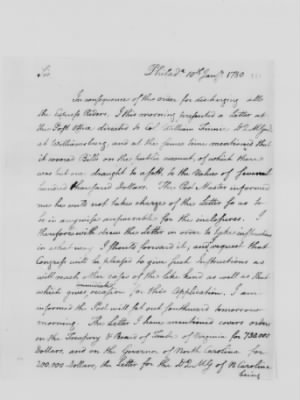 Sir
Philada. 10th Jany 1780
In consequence of the order for discharging all
the Express Riders, I this morning presented a Letter at
the Post Office directed to Col. William Finnie D.Q.M. Genl
at Williamsburg, and at the same time mentioned that
it covered Bills on the public account, of which there
was but one draught to a sett, to the Value of several
hundred thousand Dollars. The Post Master informed
me he could not take charge of the Letter so as to
be in anywise answerable for the inclosures. I
therefore with draw the Letter in order to take instructions
in what way I should forward it, and request that
Congress will be pleased to give such Instructions as
will reach other cases of the like kind as well as that
which gives immediate occasion for this Application. I am
informed the Post will set out southward tomorrow
morning. The Letter I have mentioned covers orders
on the Treasury & Board of Trade of Virginia for 750,000
Dollars, and on the Governor of North Carolina for
200,000 Dollars, the Letter for the D.Q.M.G. of N. Carolina
being